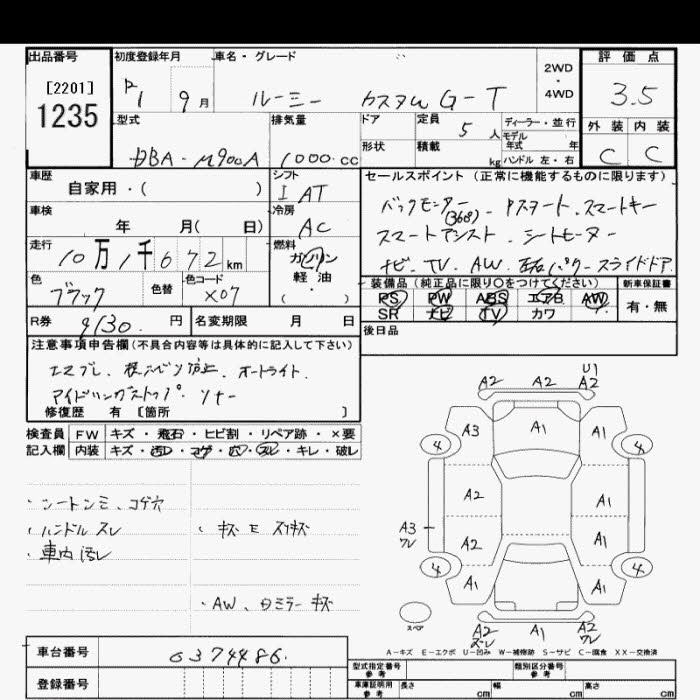 出品番号 初度登録年月 車名・グレード 評価点
[2201]
1235
R1 9月 ルーミー カスタムG-T 2WD・4WD 3.5
型式 排気量 ドア 定員 5人 ディーラー・並行 外装 内装
DBA-M900A 1000cc 形状 積載 kg モデル年式 年 ハンドル 左・右 C C
車歴 シフト セールスポイント（正常に機能するものに限ります）
自家用・( ) I AT バックモニター(360)・Pスタート・スマートキー
車検 冷房
年 月( 日) AC スマートアシスト・シートモーター
走行 燃料
10万1千672km ガソリン 軽油・( ) ナビ・TV・AW・左右パワースライドドア
色 色替 色コード 装備品（純正品に限り○をつけてください） 新車保証書
ブラック X07 PS PW ABS エアB AW 有・無
SR ナビ TV カワ
R券 9130円 名変期限 月 日 後日品
注意事項申告欄（不具合内容等は具体的に記入して下さい）
エマブレ、横スベリ防止、オートライト、
アイドリングストップ、ソナー
修復歴 有 〔箇所 〕
検査員 FW キズ・飛石・ヒビ割・リペア跡・×要
記入欄 内装 キズ・汚レ・コゲ・穴・スレ・キレ・破レ
・シートシミ、コゲ穴
・ハンドルスレ ・キズE スリキズ
・車内汚レ
・AW、ミラーキズ
A2 A2 U1 A2
A3 A1 A1
4 4
A2 A1
A3 ワレ
A2 A1
4 4
A1 A1 A1
スペア
A2 ズレ A1 A2 ワレ
A－キズ E－エクボ U－凹み W－補修跡 S－サビ C－腐食 XX－交換済
車台番号 0374486.
登録番号
型式指定番号 参考 類別区分番号 参考
車庫証明用 参考 長さ cm 幅 cm 高さ cm